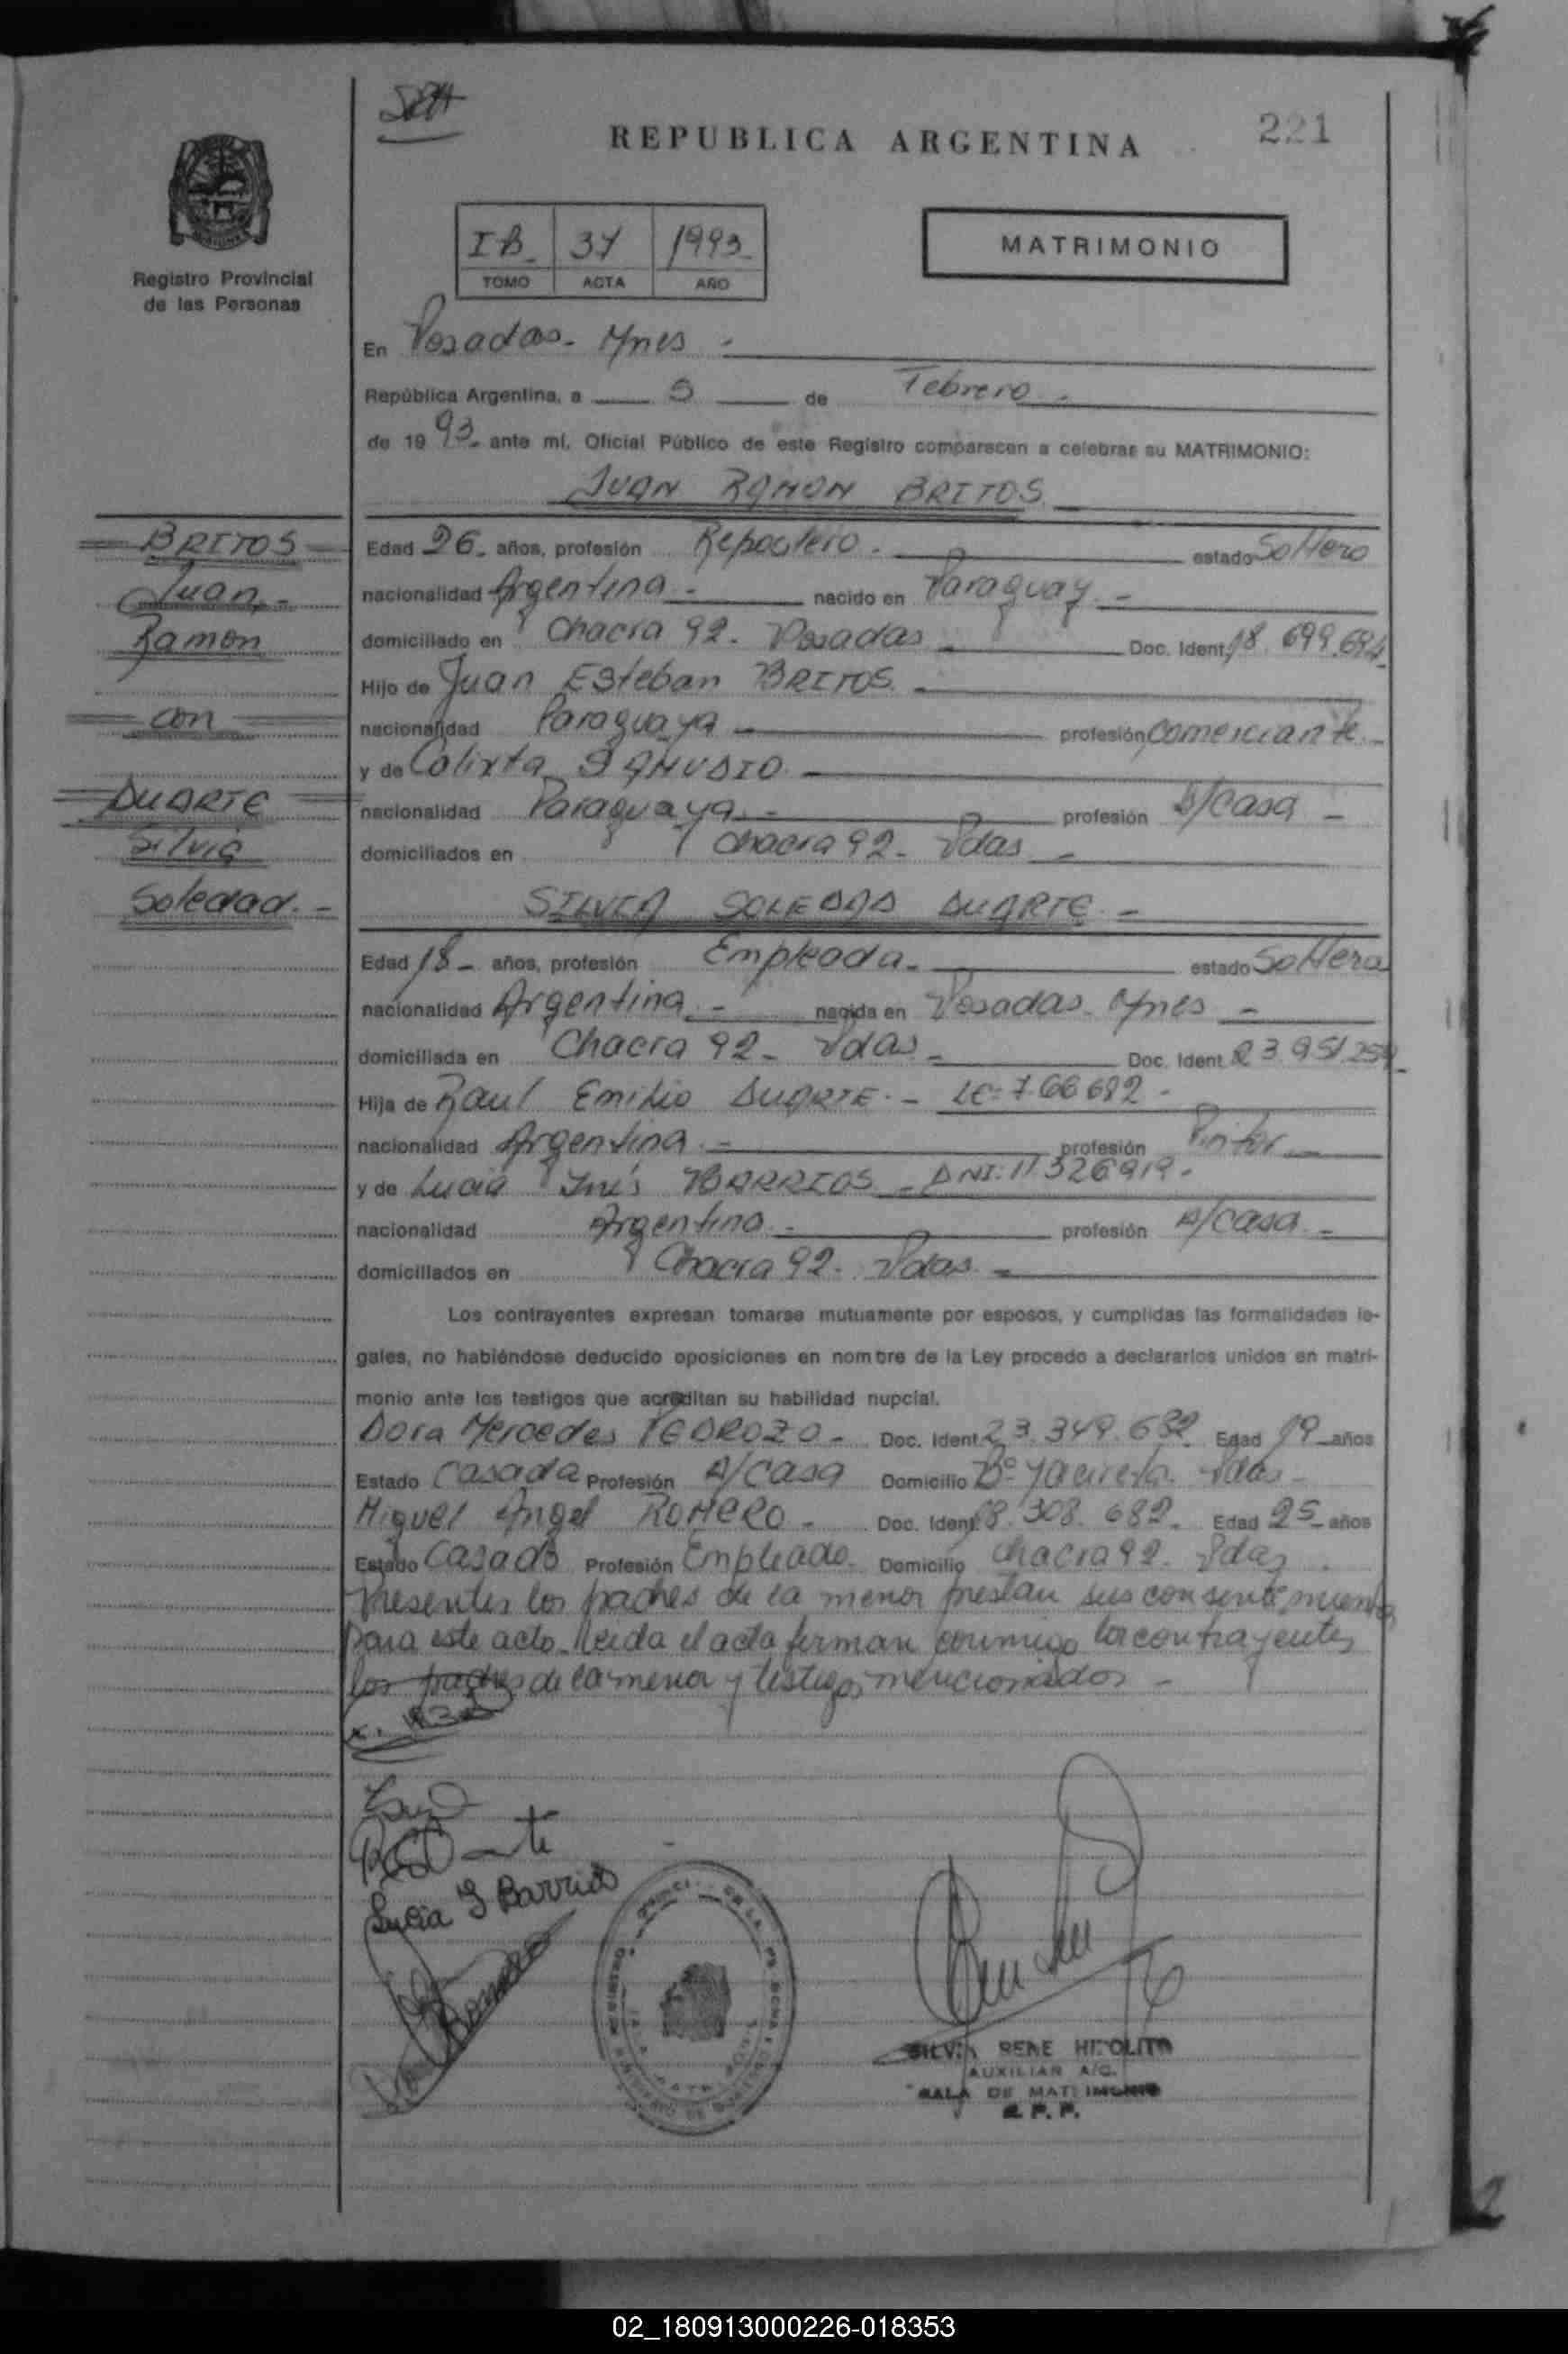 221
REPUBLICA ARGENTINA
I-B. 37 1993.
TOMO ACTA AÑO
MATRIMONIO
Registro Provincial
de las Personas
En Posadas - Mnes -
República Argentina, a 5 de Febrero -
de 19 93 - ante mí, Oficial Público de este Registro comparecen a celebrar su MATRIMONIO:
JUAN RAMON BRITOS
BRITOS
Juan -
Ramon
con
DUARTE
Silvia
Soledad. -
Edad 26 - años, profesión Repostero - estado Soltero
nacionalidad Argentina - nacido en Paraguay -
domiciliado en Chacra 92 - Posadas Doc. Ident. 18.699.694
Hijo de Juan Esteban BRITOS -
nacionalidad Paraguaya - profesión comerciante -
y de Calixta SAMUDIO -
nacionalidad Paraguaya - profesión A/casa -
domiciliados en Chacra 92 - Pdas -
SILVIA SOLEDAD DUARTE -
Edad 18 - años, profesión Empleada - estado Soltera
nacionalidad Argentina - nacida en Posadas - Mnes -
domiciliada en Chacra 92 - Pdas - Doc. Ident. 23.951.25
Hija de Raul Emilio DUARTE - LE: 7.66682 -
nacionalidad Argentina - profesión Pintor -
y de Lucia Inés BARRIOS - DNI: 11326919 -
nacionalidad Argentina - profesión A/casa -
domiciliados en Chacra 92 - Pdas -
Los contrayentes expresan tomarse mutuamente por esposos, y cumplidas las formalidades le-
gales, no habiéndose deducido oposiciones en nombre de la Ley procedo a declararlos unidos en matri-
monio ante los testigos que acreditan su habilidad nupcial.
Dora Mercedes PEDROZO - Doc. Ident. 23.349.682 Edad 19 años
Estado Casada Profesión A/casa Domicilio Bº Yacireta - Pdas -
Miguel Angel ROMERO - Doc. Ident. 18.308.682 - Edad 25 - años
Estado Casado Profesión Empleado - Domicilio Chacra 92 - Pdas
Presentes los padres de la menor prestan sus consentimientos
para este acto. Leida el acta firman conmigo los contrayentes
los padres de la menor y testigos mencionados -
Lucia I Barrios
Romero
SILVIA RENE HIPOLITO
AUXILIAR A/C.
SALA DE MATRIMONIO
R. P. P.
02_180913000226-018353